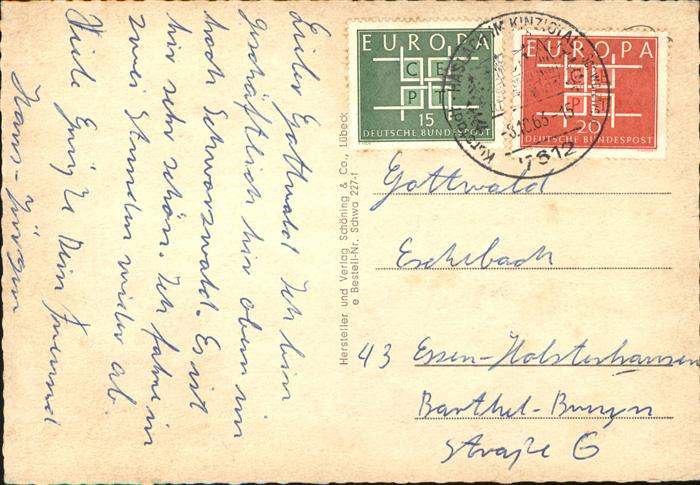 Lieber Gottwald Ich bin
geschäftlich hier oben im
hoch Schwarzwald. Es ist
hir sehr schön. Ich fahre in
zwei Stunden wider ab.
Viele Grüße Dein Freund
Hans-Jürgen
Hersteller und Verlag Schöning & Co., Lübeck
e Bestell-Nr. Schwa 227-f
EUROPA
C E
P
15
DEUTSCHE BUNDESPOST
EUROPA
C E
P
20
DEUTSCHE BUNDESPOST
HASLACH IM KINZIGTAL
8.10.63-15
7612
Gottwald
Eschebach
43 Essen-Holsterhausen
Barthel-Bruyn
Straße 6